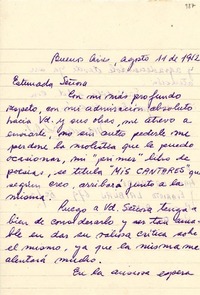 Buenos Aires, agosto 11 de 1912
Estimada Señora
Con mi más profundo
respeto, con mi admiración absoluta
hacia Vd. y sus obras, me atrevo a
enviarle, no sin antes pedirle me
perdone la molestia que le puedo
ocasionar, mi "primer" libro de
poesías, se titula "MIS CANTARES" que
según creo, arribará junto a la
misma.
Ruego a Vd. Señora tenga a
bien de considerarlo y ser tan ama-
ble en dar su valiosa crítica sobre
el mismo, ya que la misma me
alentará mucho.
En la ansiosa espera